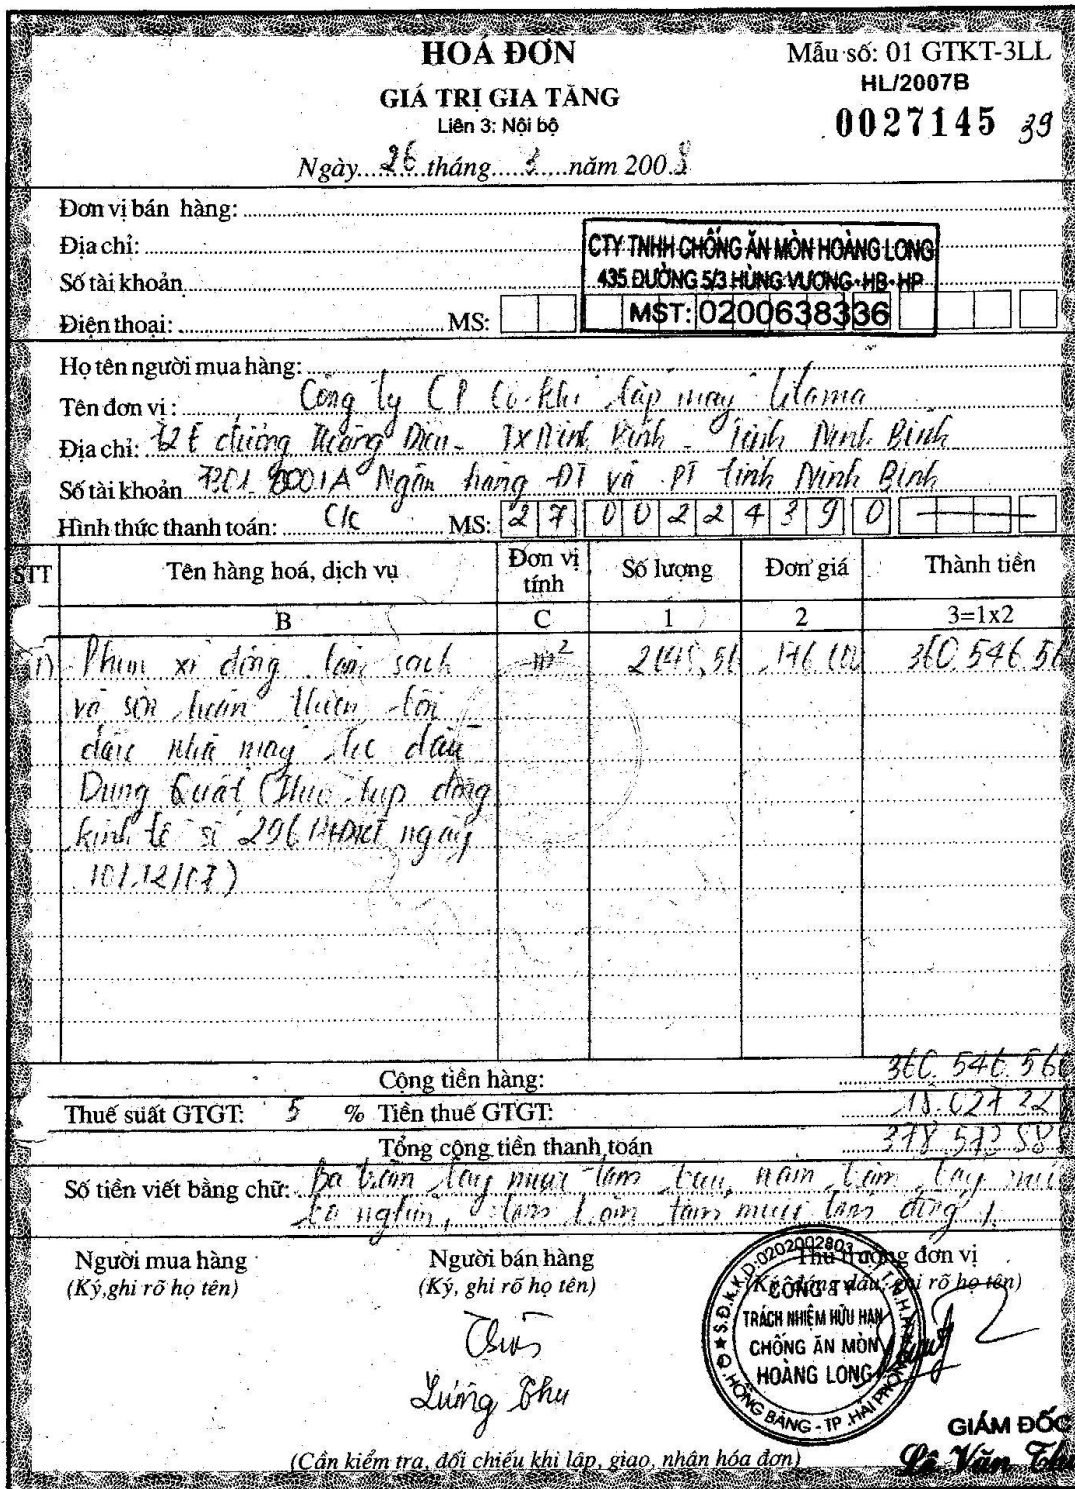 HOÁ ĐƠN
GIÁ TRỊ GIA TĂNG
Liên 3: Nội bộ
Ngày 26 tháng 3 năm 2008
Mẫu số: 01 GTKT-3LL
HL/2007B
0027145 39
Đơn vị bán hàng:
Địa chỉ:
Số tài khoản
Điện thoại: MS:
CTY TNHH CHỐNG ĂN MÒN HOÀNG LONG
435 ĐƯỜNG 5/3 HÙNG VƯƠNG-HB-HP
MST: 0200638336
Họ tên người mua hàng:
Tên đơn vị: Công ty CP Cơ khí lắp máy Lilama
Địa chỉ: 72E đường Hoàng Diệu - Tx Ninh Bình - Tỉnh Ninh Bình
Số tài khoản Ngân hàng ĐT và PT tỉnh Ninh Bình
Hình thức thanh toán: C/c MS: 27 00224390
STT Tên hàng hoá, dịch vụ Đơn vị tính Số lượng Đơn giá Thành tiền
B C 1 2 3=1x2
1) Phun xỉ đồng làm sạch m² 360.546.56
và sơn hoàn thiện
dầu nhà máy lọc dầu
Dung Quất
kinh tế số 296 HĐKT ngày
Cộng tiền hàng: 360.546.56
Thuế suất GTGT: 5 % Tiền thuế GTGT: 18.027.32
Tổng cộng tiền thanh toán 378.573.88
Số tiền viết bằng chữ: Ba trăm bảy mươi tám triệu, năm trăm bảy mươi
ba nghìn, tám trăm tám mươi tám đồng
Người mua hàng
(Ký,ghi rõ họ tên)
Người bán hàng
(Ký, ghi rõ họ tên)
Thủ trưởng đơn vị
(Ký, đóng dấu, ghi rõ họ tên)
S.Đ.K.K.D:0202002803
CÔNG TY
TRÁCH NHIỆM HỮU HẠN
CHỐNG ĂN MÒN
HOÀNG LONG
Q.HỒNG BÀNG - TP.HẢI PHÒNG
GIÁM ĐỐC
Lê Văn
(Cần kiểm tra, đối chiếu khi lập, giao, nhận hóa đơn)